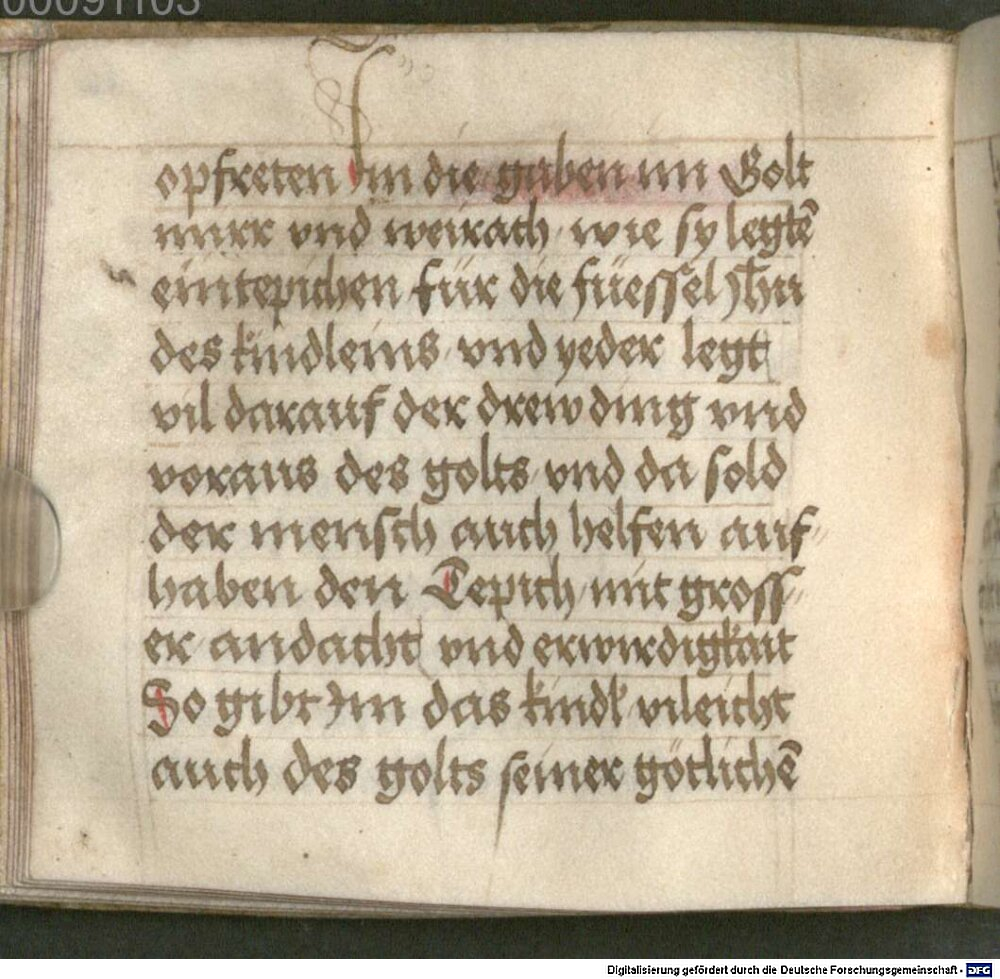 00091103
opfreten Im die gaben im Golt
mirr vnd weirach wie sy legtē
ein tepichen für die füessel Jhū
des kindleins vnd yeder legt
vil darauf der drew ding vnd
voraus des golts vnd da sold
der mensch auch helfen auf-
haben den Tepich mit gross-
er andacht vnd erwirdigkait
So gibt Im das kindl vileicht
auch des golts seiner götlichē
Digitalisierung gefördert durch die Deutsche Forschungsgemeinschaft - DFG